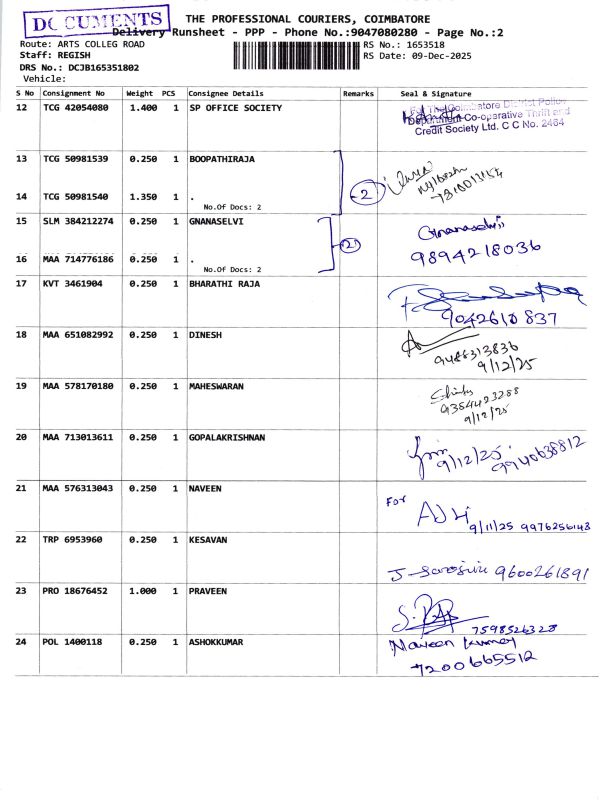 DOCUMENTS
THE PROFESSIONAL COURIERS, COIMBATORE
Delivery Runsheet - PPP - Phone No.:9047080280 - Page No.:2
Route: ARTS COLLEG ROAD
RS No.: 1653518
Staff: REGISH
RS Date: 09-Dec-2025
DRS No.: DCJB165351802
Vehicle:
S No Consignment No Weight PCS Consignee Details Remarks Seal & Signature
12 TCG 42054080 1.400 1 SP OFFICE SOCIETY
For The Coimbatore District Police
Department Co-operative Thrift and
Credit Society Ltd. C C No. 2464
13 TCG 50981539 0.250 1 BOOPATHIRAJA
14 TCG 50981540 1.350 1 .
No.Of Docs: 2
2
15 SLM 384212274 0.250 1 GNANASELVI
Gnanaselvi
16 MAA 714776186 0.250 1 .
No.Of Docs: 2
(2)
9894218036
17 KVT 3461904 0.250 1 BHARATHI RAJA
9042610837
18 MAA 651082992 0.250 1 DINESH
9486313836
9/12/25
19 MAA 578170180 0.250 1 MAHESWARAN
9354423288
9/12/25
20 MAA 713013611 0.250 1 GOPALAKRISHNAN
9/12/25. 9940638812
21 MAA 576313043 0.250 1 NAVEEN
For
9/11/25 9976256143
22 TRP 6953960 0.250 1 KESAVAN
9600261891
23 PRO 18676452 1.000 1 PRAVEEN
7598526328
24 POL 1400118 0.250 1 ASHOKKUMAR
Naveen Kumar
7200665512